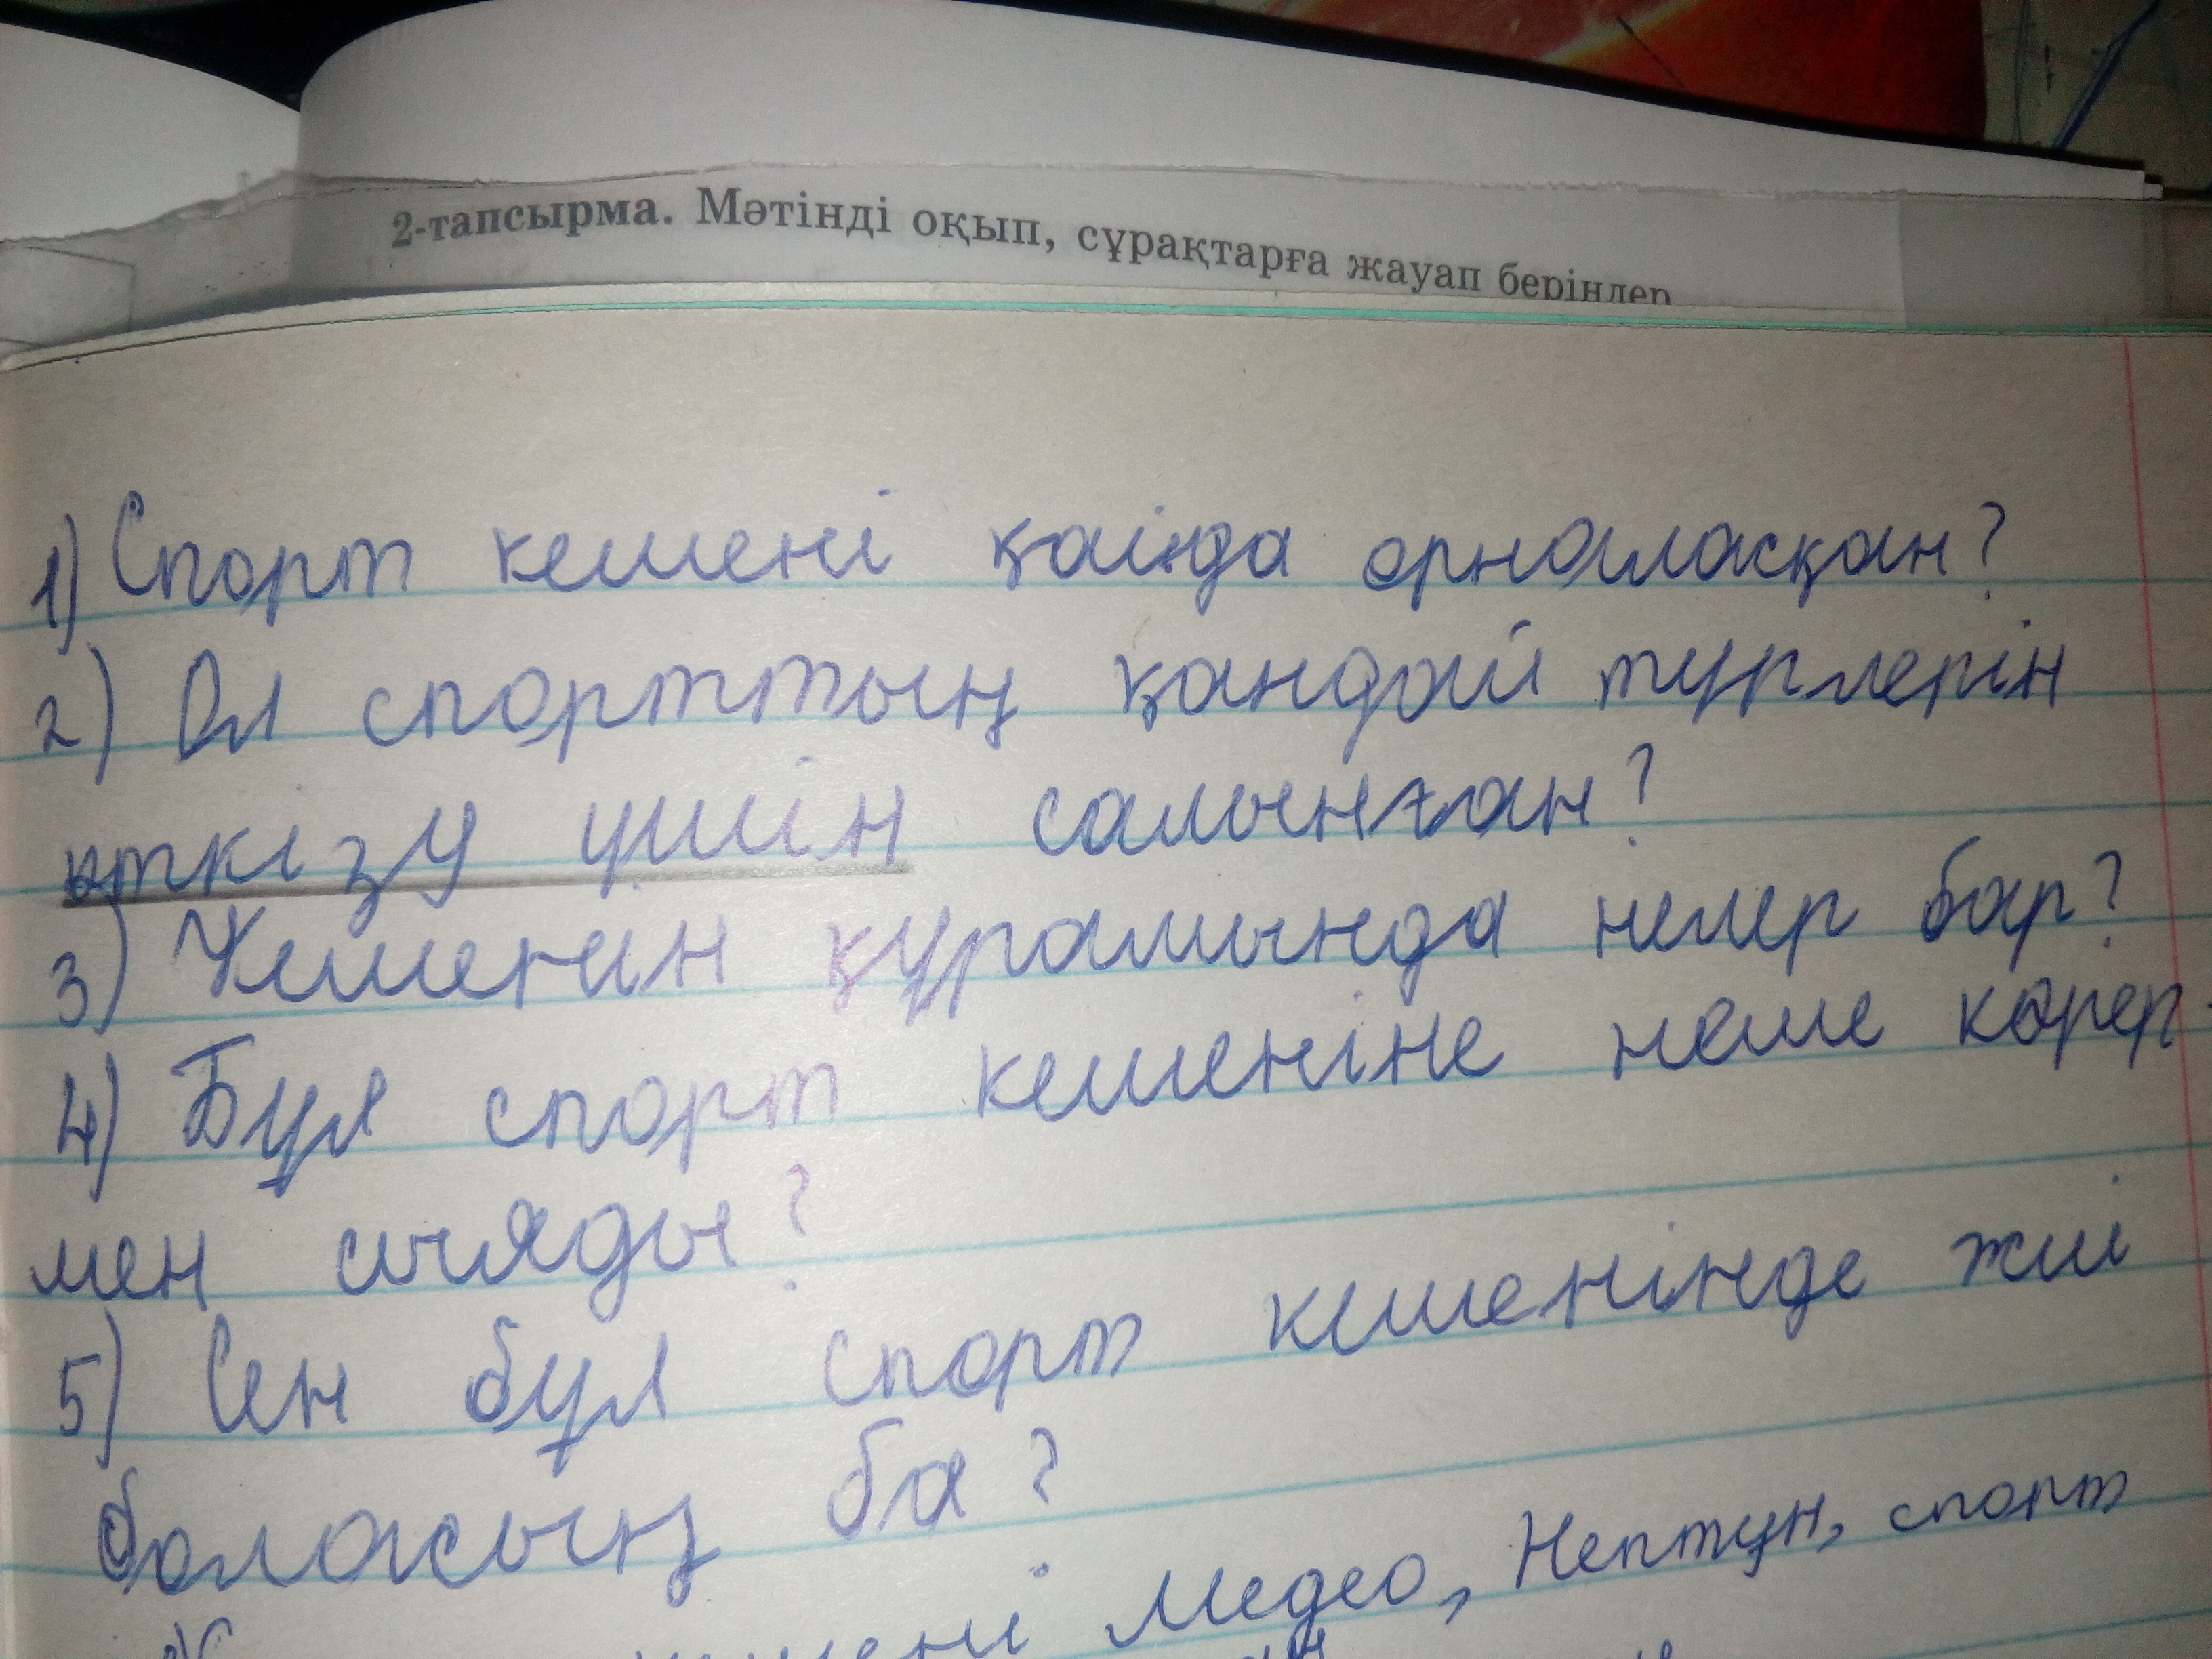 2-тапсырма. Мәтінді оқып, сұрақтарға жауап беріңдер
1) Спорт кешені қайнда орналасқан?
2) Ол спорттың қандай түрлерін
өткізу үшін салынған?
3) Кешенін құрамында нелер бар?
4) Бұл спорт кешеніне неше көрер
мен сыяды?
5) Сен бұл спорт кешенінде жиі
боласың ба?
Медео, Нептун, спорт